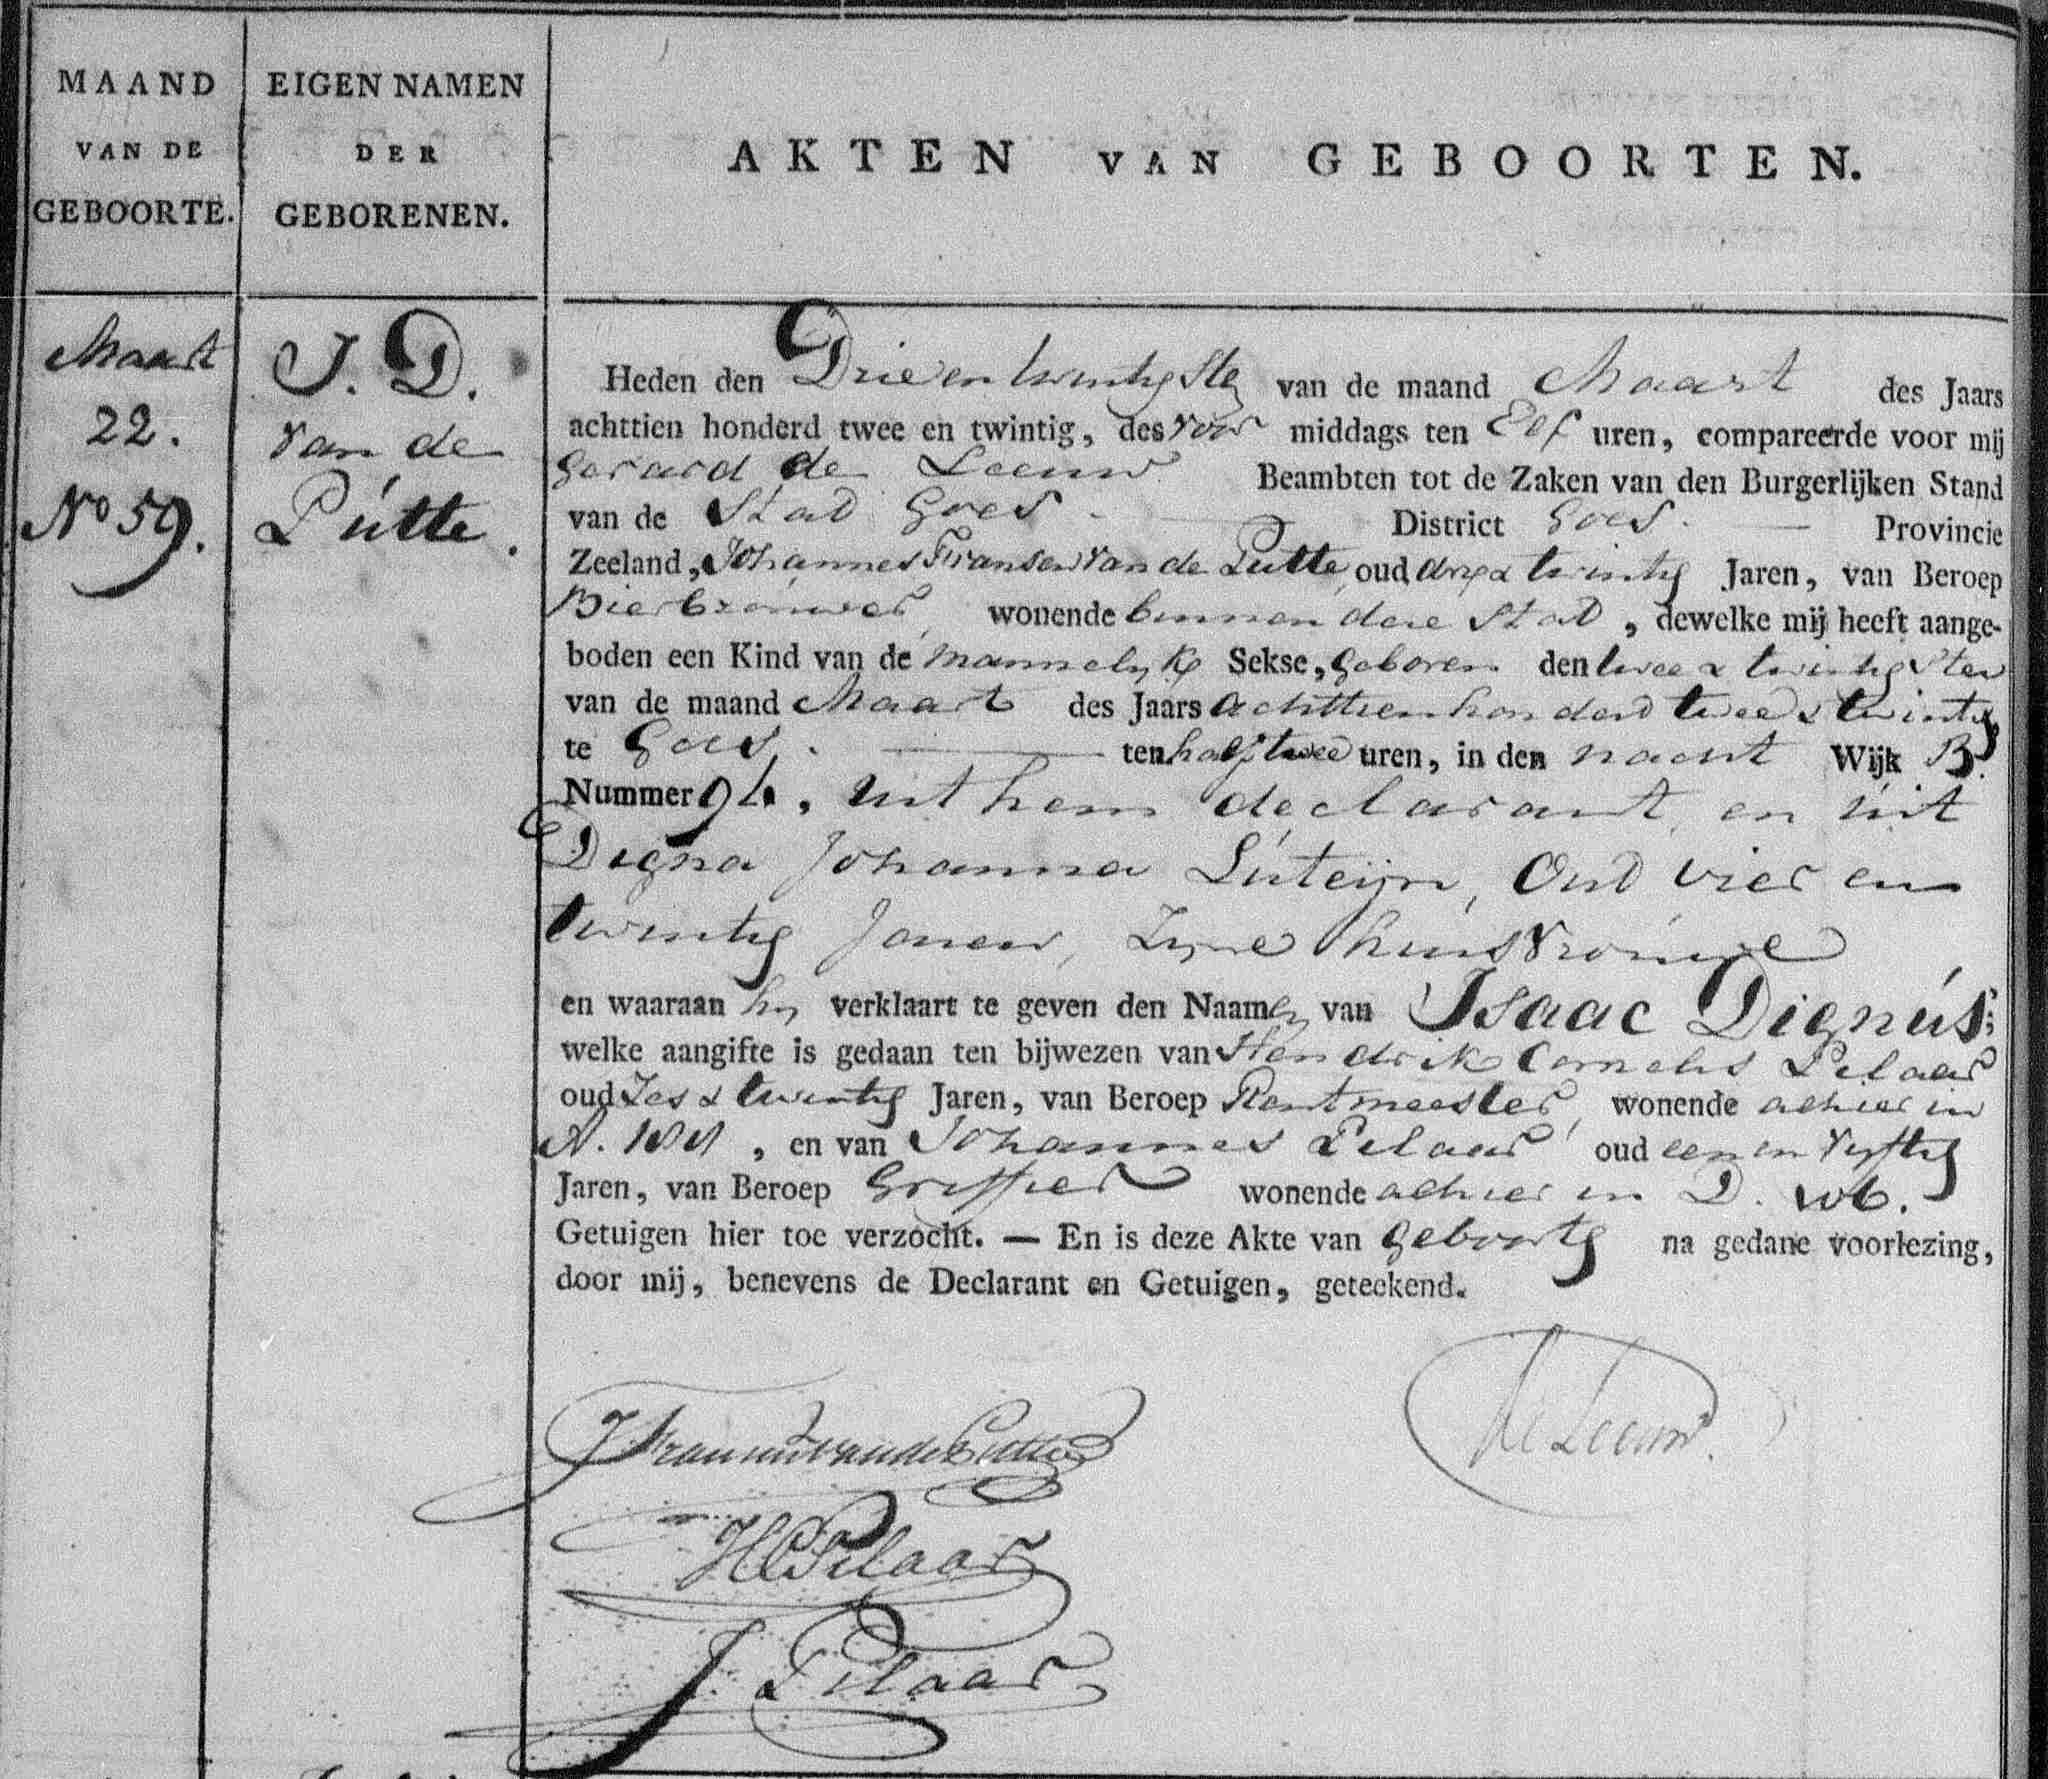 MAAND
VAN DE
GEBOORTE.
EIGEN NAMEN
DER
GEBORENEN.
AKTEN VAN GEBOORTEN.
Maart
22.
No 59.
I. D.
van de
Pútte.
Heden den Drieentwintigste van de maand Maart des Jaars
achttien honderd twee en twintig, des voor middags ten Elf uren, compareerde voor mij
Gerard de Leeuw Beambten tot de Zaken van den Burgerlijken Stand
van de Stad Goes. District Goes. Provincie
Zeeland, Johannes Fransen van de Putte, oud drie & twintig Jaren, van Beroep
Bierbrouwer, wonende binnen deze Stad, dewelke mij heeft aange-
boden een Kind van de mannelyke Sekse, geboren den twee & twintigsten
van de maand Maart des Jaars achttienhonderd twee & twintig
te Goes. ten half twee uren, in den nacht Wijk B.
Nummer uit hem declarant, en uit
Digna Johanna Luteijn, Oud vier en
twintig Jaren, Zyne huisvrouwe
en waaraan hy verklaart te geven den Naamen van Isaac Dignús;
welke aangifte is gedaan ten bijwezen van Hendrik Cornelis Pilaar
oud Zes & twintig Jaren, van Beroep Rentmeester, wonende alhier in
A. , en van Johannes Pilaar oud een en vyftig
Jaren, van Beroep Griffier wonende alhier in D.
Getuigen hier toe verzocht. — En is deze Akte van geboorte na gedane voorlezing,
door mij, benevens de Declarant en Getuigen, geteekend.
J Fransen van de Putte
de Leeuw.
HC Pilaar
J. Pilaar